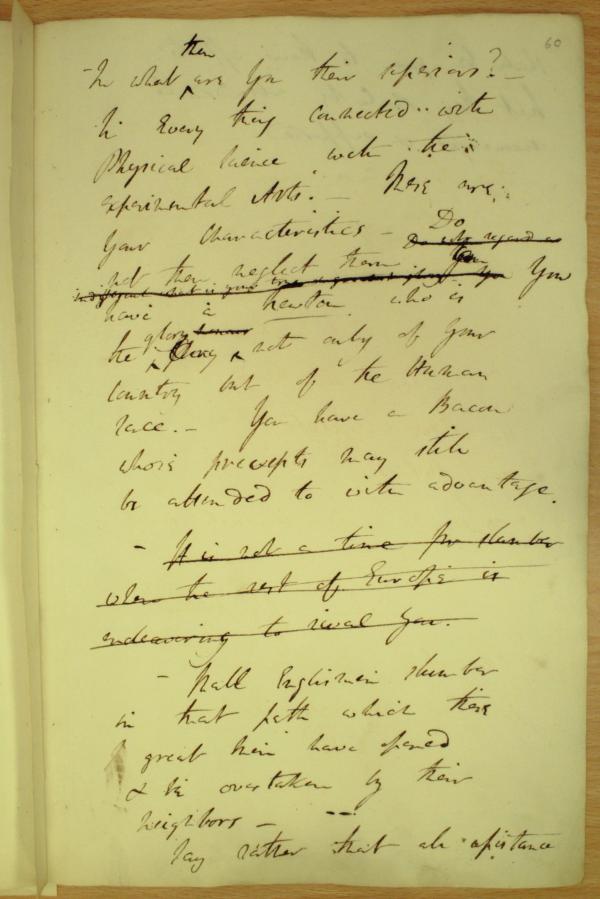 60
then
In what are you their superiors? —
In Every thing connected with
Physical Science with the
experimental Arts. — These are
Your Characteristics — Do
not then neglect them You
have a Newton who is
the glory not only of Your
Country but of the Human
race. — You have a Bacon
whose precepts may still
be attended to with advantage.
— It is not a time for slumber
when the rest of Europe is
endeavoring to rival you. —
— Shall Englishmen slumber
in that path which these
great Men have opened
& be overtaken by their
neighbors —
Say rather that all assistance